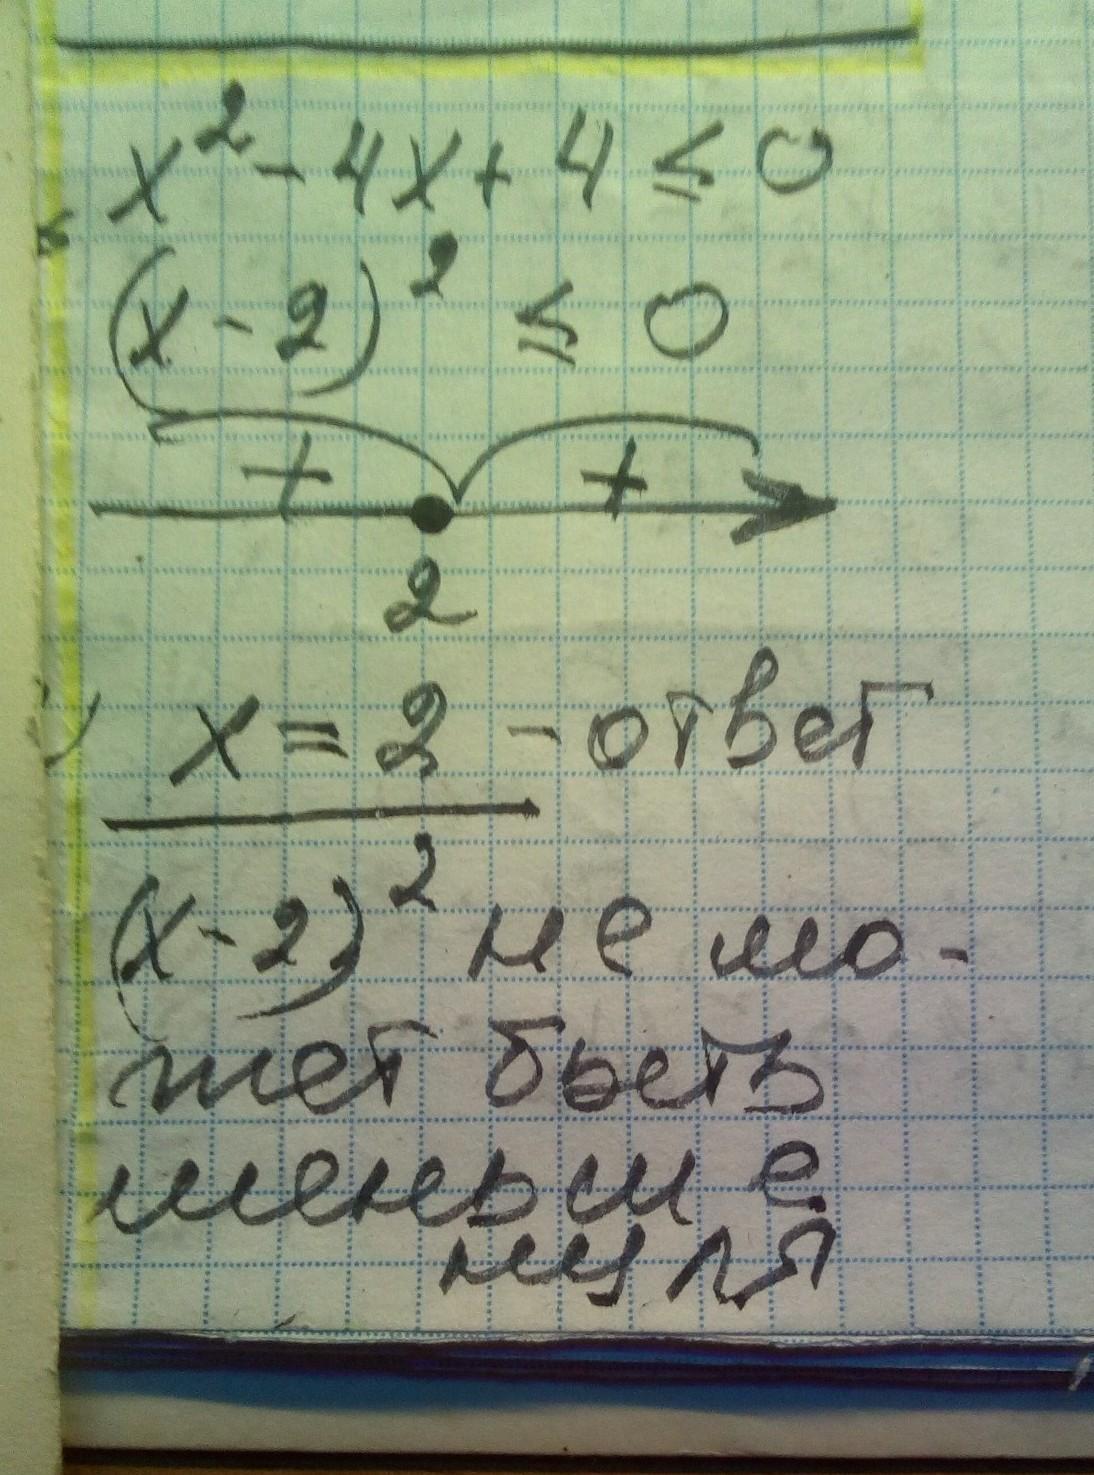 x² - 4x + 4 ≤ 0
(x - 2)² ≤ 0
+ +
2
x = 2 - ответ
(x - 2)² не мо-
жет быть
меньше
нуля